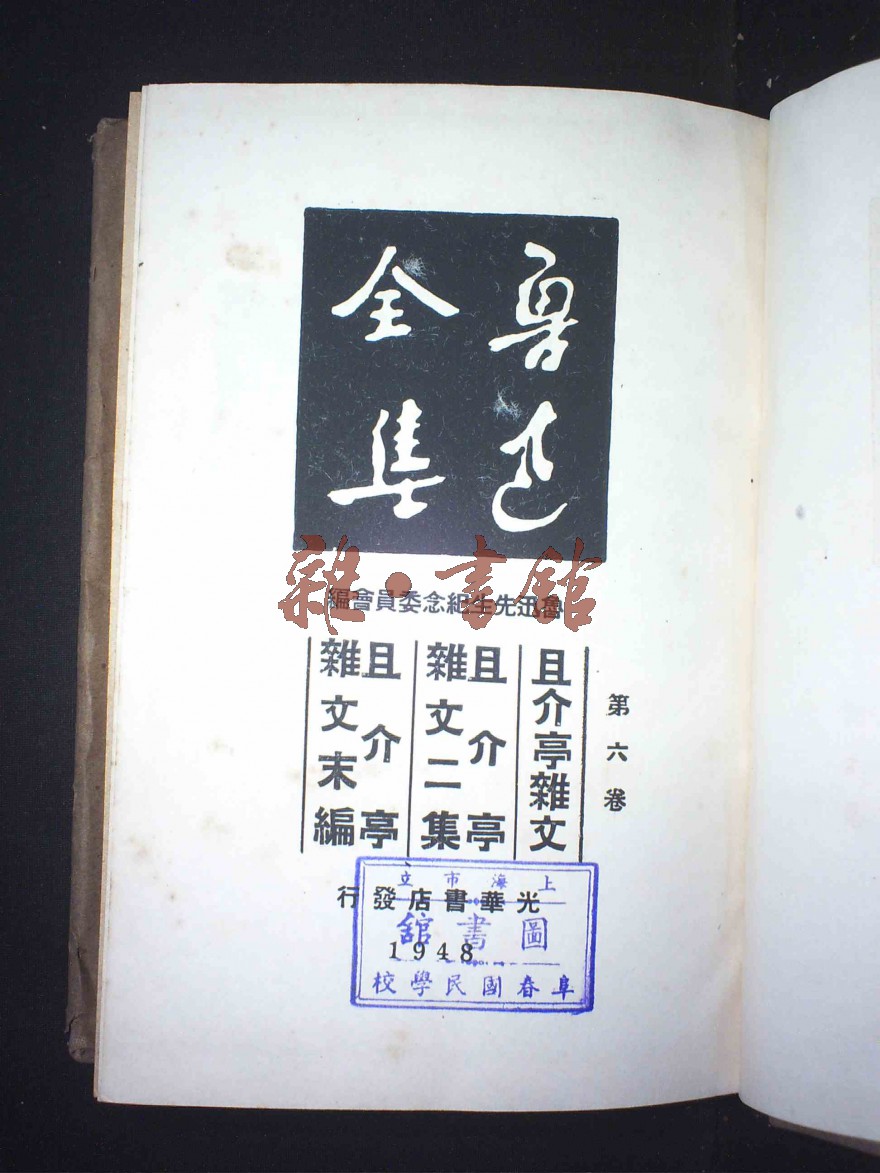 魯迅
全集
雜·書館
魯迅先生紀念委員會編
第六卷
且介亭雜文
且介亭
雜文二集
且介亭
雜文末編
光華書店發行
1948
上海市立
圖書館
阜春國民學校